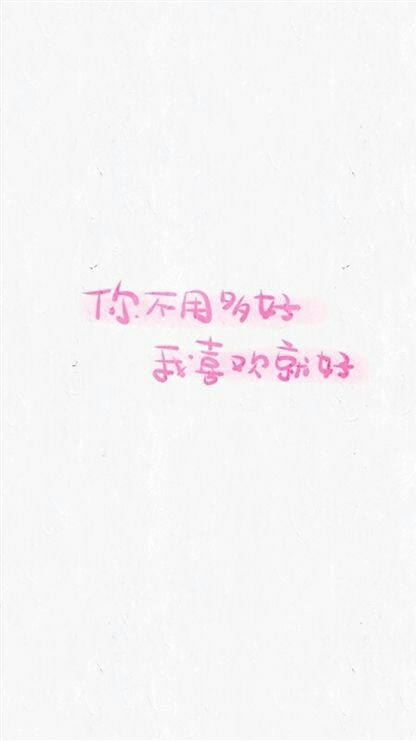 你不用多好
我喜欢就好